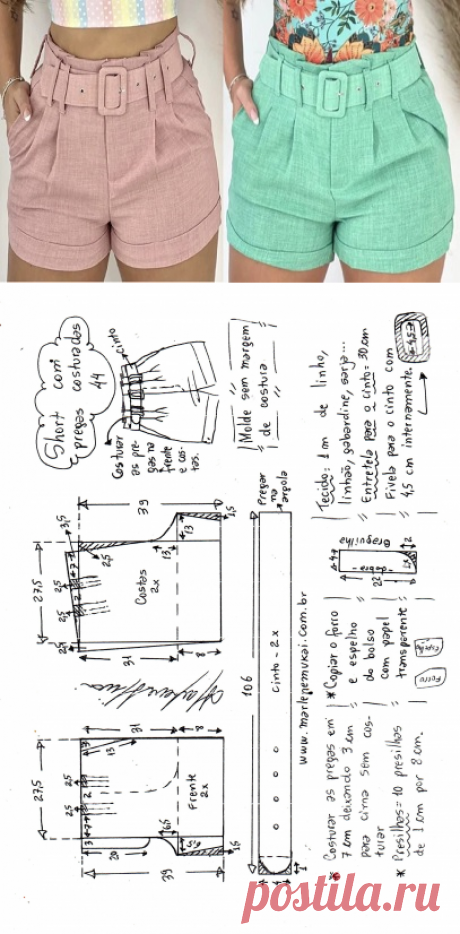 Short com
pregas costuradas
44
Costurar
as pre-
gas na
frente
e cos-
tas.
cinto
Molde sem margem
de costura
Tecido: 1 m de linho,
linhão, gabardine, sarja...
Entretela para o cinto = 30 cm
Fivela para o cinto com
4,5 cm internamente.
4,5
39
27,5
3,5
2,5
2,5
2
2,5
13
13
1,5
Costas
2x
31
8
Pregar
na
argola
106
cinto - 2x
www.marlenemukai.com.br
Braguilha
4
dobra
22
2
* Copiar o forro
e espelho
do bolso
com papel
transparente
Forro
* Costurar as pregas em
7 cm deixando 3 cm
para cima sem cos-
turar
* Presilhas = 10 presilhas
de 1 cm por 8 cm.
31
8
27,5
3
13
2,5
2,5
7
3
20
Frente
2x
39
postila.ru